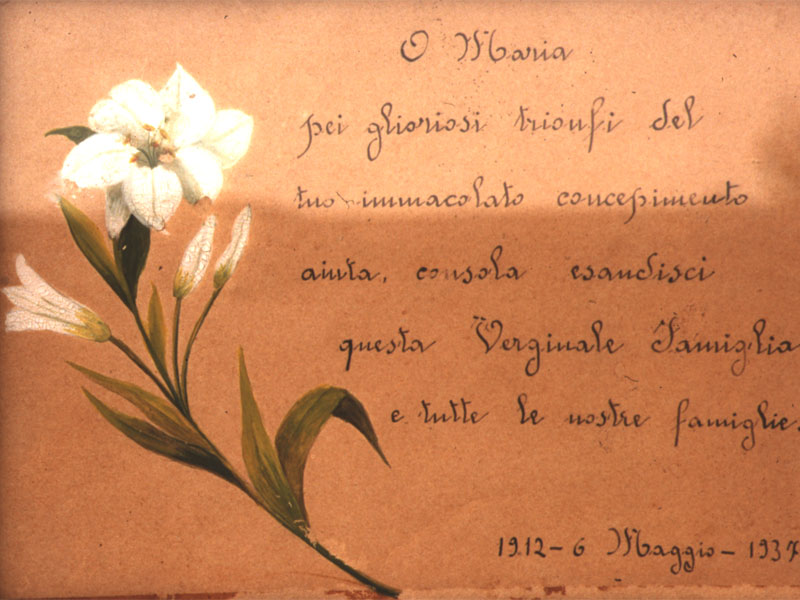 O Maria
pei glioriosi trionfi del
tuo immacolato concepimento
aiuta, consola esaudisci
questa Verginale Famiglia
e tutte le nostre famiglie.
1912-6 Maggio-1937